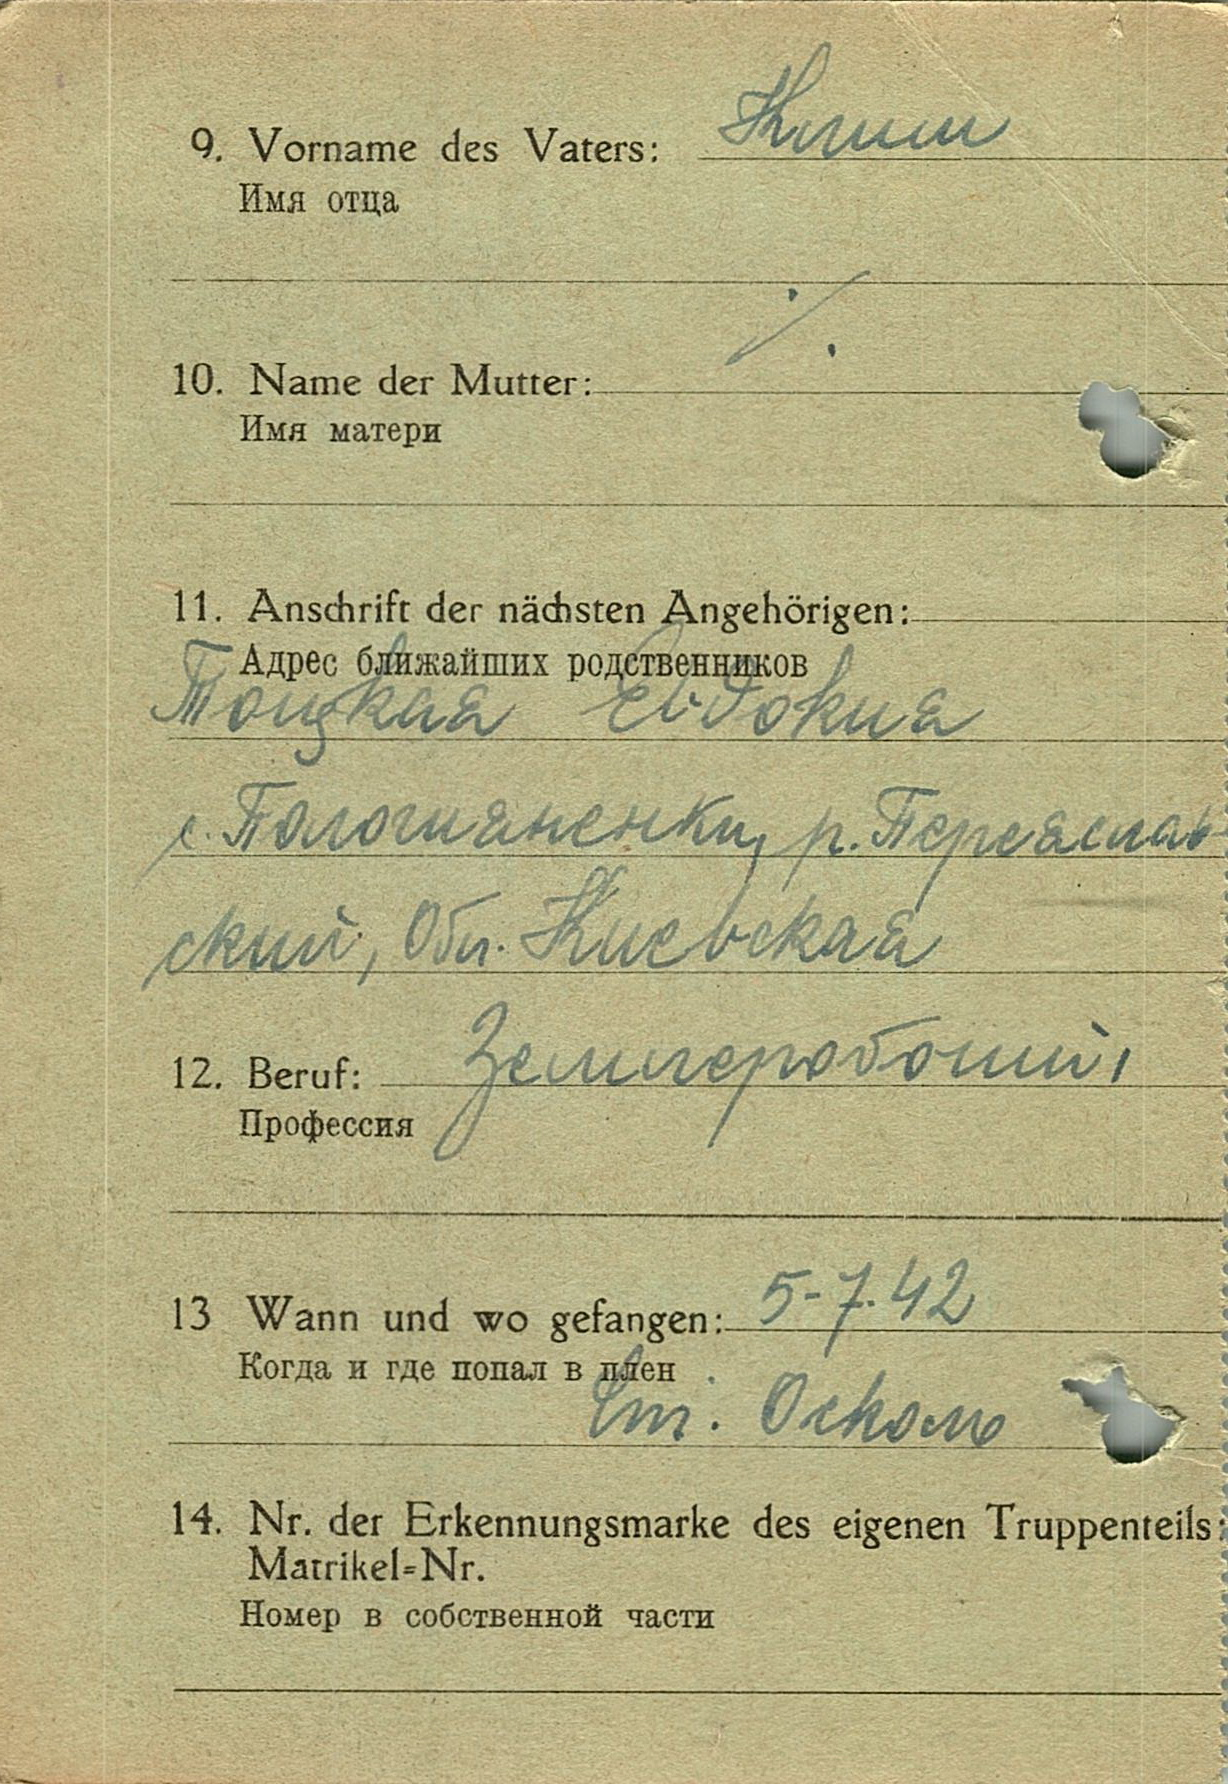 9. Vorname des Vaters: Клим
Имя отца
./.
10. Name der Mutter:
Имя матери
11. Anschrift der nächsten Angehörigen:
Адрес ближайших родственников
Тоцкая Евдокия
с. Пологияненки, р. Переяслав
ский, Обл. Киевская
12. Beruf: Землеробоший
Профессия
13 Wann und wo gefangen: 5-7.42
Когда и где попал в плен
Ст. Осколь
14. Nr. der Erkennungsmarke des eigenen Truppenteils:
Matrikel=Nr.
Номер в собственной части